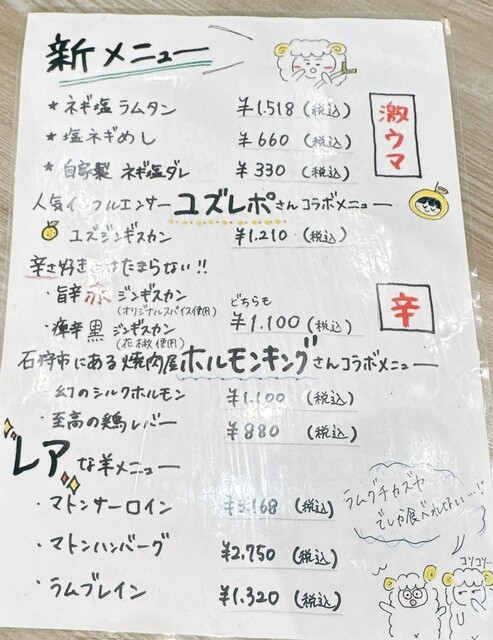 新メニュー
★ネギ塩ラムタン ¥1.518 (税込)
★塩ネギめし ¥660 (税込)
★自家製 ネギ塩ダレ ¥330 (税込)
激ウマ
人気インフルエンサー ユズレポさんコラボメニュー
ユズジンギスカン ¥1.210 (税込)
辛さ好きにはたまらない!!
・旨辛 赤 ジンギスカン
(オリジナルスパイス使用)
どちらも
・痺辛 黒 ジンギスカン ¥1.100 (税込)
(花椒使用)
辛
石狩市にある焼肉屋ホルモンキングさんコラボメニュー
・幻のシルクホルモン ¥1.100 (税込)
・至高の鶏レバー ¥880 (税込)
レアな羊メニュー
・マトンサーロイン ¥3.168 (税込)
・マトンハンバーグ ¥2.750 (税込)
・ラムブレイン ¥1.320 (税込)
ラムグチカズヤ
でしか食べれない…!!
コソコソ